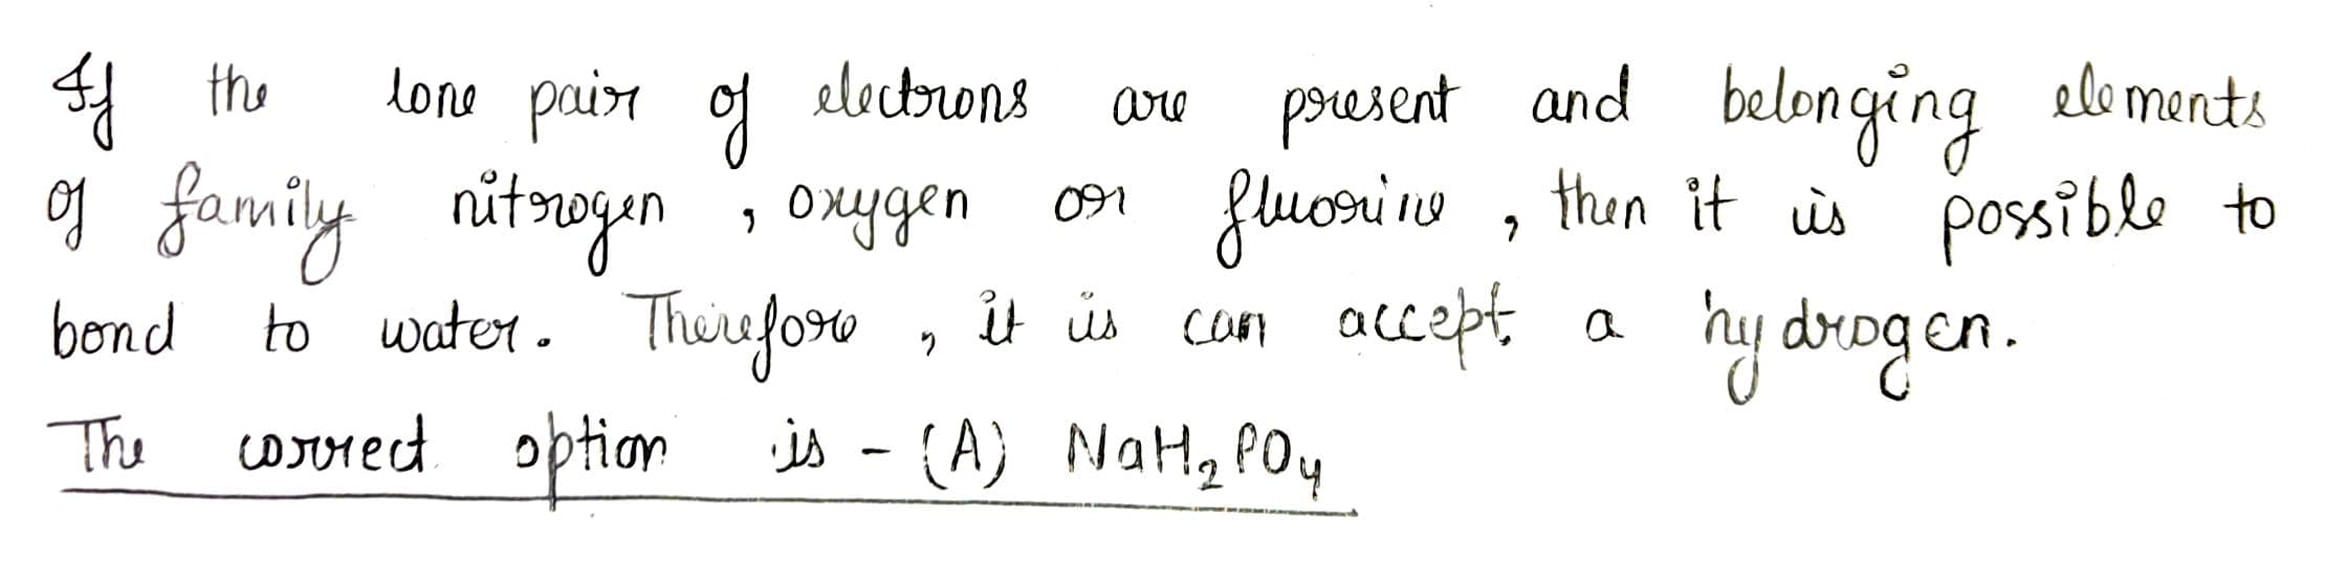 If the lone pair of electrons are present and belonging elements
of family nitrogen , oxygen or fluorine , then it is possible to
bond to water. Therefore , it is can accept a hydrogen.
The correct option is - (A) NaH₂PO₄